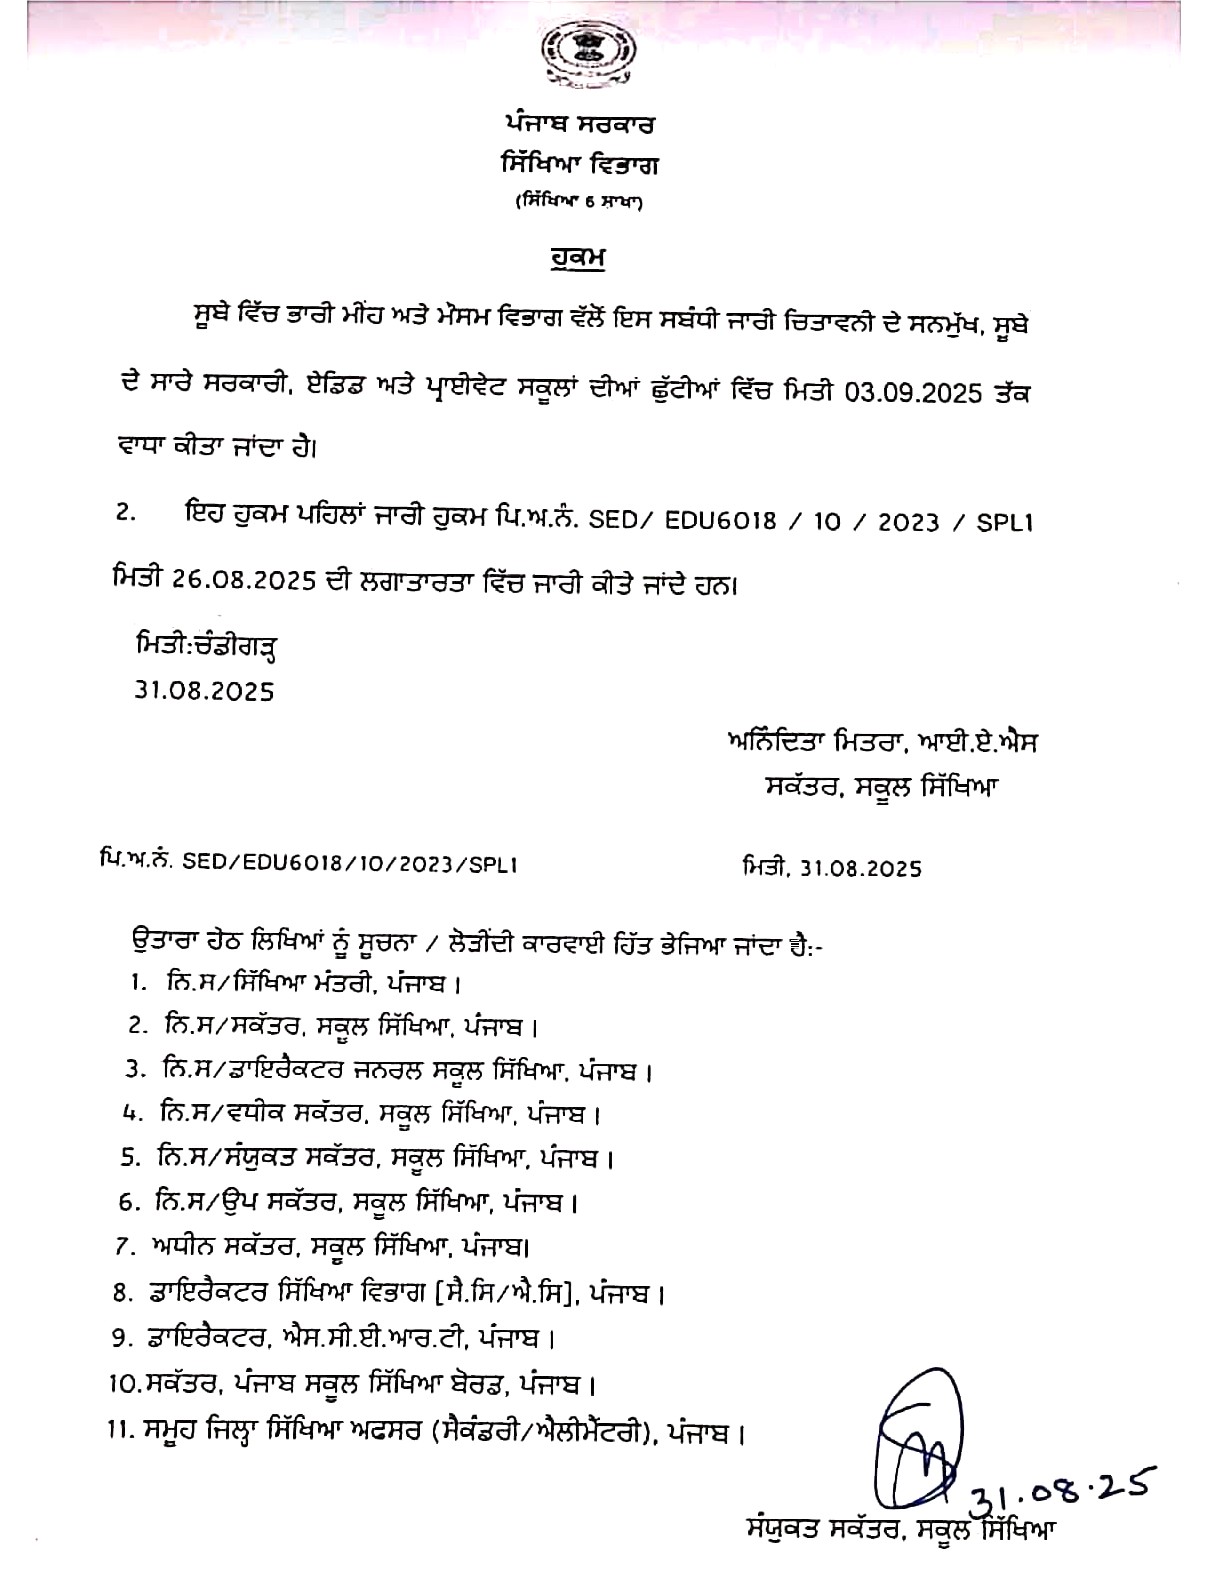 ਪੰਜਾਬ ਸਰਕਾਰ
ਸਿੱਖਿਆ ਵਿਭਾਗ
(ਸਿੱਖਿਆ 6 ਸ਼ਾਖਾ)
ਹੁਕਮ
ਸੂਬੇ ਵਿੱਚ ਭਾਰੀ ਮੀਂਹ ਅਤੇ ਮੌਸਮ ਵਿਭਾਗ ਵੱਲੋਂ ਇਸ ਸਬੰਧੀ ਜਾਰੀ ਚਿਤਾਵਨੀ ਦੇ ਸਨਮੁੱਖ, ਸੂਬੇ
ਦੇ ਸਾਰੇ ਸਰਕਾਰੀ, ਏਡਿਡ ਅਤੇ ਪ੍ਰਾਈਵੇਟ ਸਕੂਲਾਂ ਦੀਆਂ ਛੁੱਟੀਆਂ ਵਿੱਚ ਮਿਤੀ 03.09.2025 ਤੱਕ
ਵਾਧਾ ਕੀਤਾ ਜਾਂਦਾ ਹੈ।
2. ਇਹ ਹੁਕਮ ਪਹਿਲਾਂ ਜਾਰੀ ਹੁਕਮ ਪਿ.ਅ.ਨੰ. SED/ EDU6018 / 10 / 2023 / SPL1
ਮਿਤੀ 26.08.2025 ਦੀ ਲਗਾਤਾਰਤਾ ਵਿੱਚ ਜਾਰੀ ਕੀਤੇ ਜਾਂਦੇ ਹਨ।
ਮਿਤੀ:ਚੰਡੀਗੜ੍ਹ
31.08.2025
ਅਨਿੰਦਿਤਾ ਮਿਤਰਾ, ਆਈ.ਏ.ਐਸ
ਸਕੱਤਰ, ਸਕੂਲ ਸਿੱਖਿਆ
ਪਿ.ਅ.ਨੰ. SED/EDU6018/10/2023/SPL1 ਮਿਤੀ, 31.08.2025
ਉਤਾਰਾ ਹੇਠ ਲਿਖਿਆਂ ਨੂੰ ਸੂਚਨਾ / ਲੋੜੀਂਦੀ ਕਾਰਵਾਈ ਹਿੱਤ ਭੇਜਿਆ ਜਾਂਦਾ ਹੈ:-
1. ਨਿ.ਸ/ਸਿੱਖਿਆ ਮੰਤਰੀ, ਪੰਜਾਬ ।
2. ਨਿ.ਸ/ਸਕੱਤਰ, ਸਕੂਲ ਸਿੱਖਿਆ, ਪੰਜਾਬ ।
3. ਨਿ.ਸ/ਡਾਇਰੈਕਟਰ ਜਨਰਲ ਸਕੂਲ ਸਿੱਖਿਆ, ਪੰਜਾਬ ।
4. ਨਿ.ਸ/ਵਧੀਕ ਸਕੱਤਰ, ਸਕੂਲ ਸਿੱਖਿਆ, ਪੰਜਾਬ ।
5. ਨਿ.ਸ/ਸੰਯੁਕਤ ਸਕੱਤਰ, ਸਕੂਲ ਸਿੱਖਿਆ, ਪੰਜਾਬ ।
6. ਨਿ.ਸ/ਉਪ ਸਕੱਤਰ, ਸਕੂਲ ਸਿੱਖਿਆ, ਪੰਜਾਬ ।
7. ਅਧੀਨ ਸਕੱਤਰ, ਸਕੂਲ ਸਿੱਖਿਆ, ਪੰਜਾਬ।
8. ਡਾਇਰੈਕਟਰ ਸਿੱਖਿਆ ਵਿਭਾਗ [ਸੈ.ਸਿ/ਐ.ਸਿ], ਪੰਜਾਬ ।
9. ਡਾਇਰੈਕਟਰ, ਐਸ.ਸੀ.ਈ.ਆਰ.ਟੀ, ਪੰਜਾਬ ।
10.ਸਕੱਤਰ, ਪੰਜਾਬ ਸਕੂਲ ਸਿੱਖਿਆ ਬੋਰਡ, ਪੰਜਾਬ ।
11. ਸਮੂਹ ਜਿਲ੍ਹਾ ਸਿੱਖਿਆ ਅਫਸਰ (ਸੈਕੰਡਰੀ/ਐਲੀਮੈਂਟਰੀ), ਪੰਜਾਬ ।
31.08.25
ਸੰਯੁਕਤ ਸਕੱਤਰ, ਸਕੂਲ ਸਿੱਖਿਆ